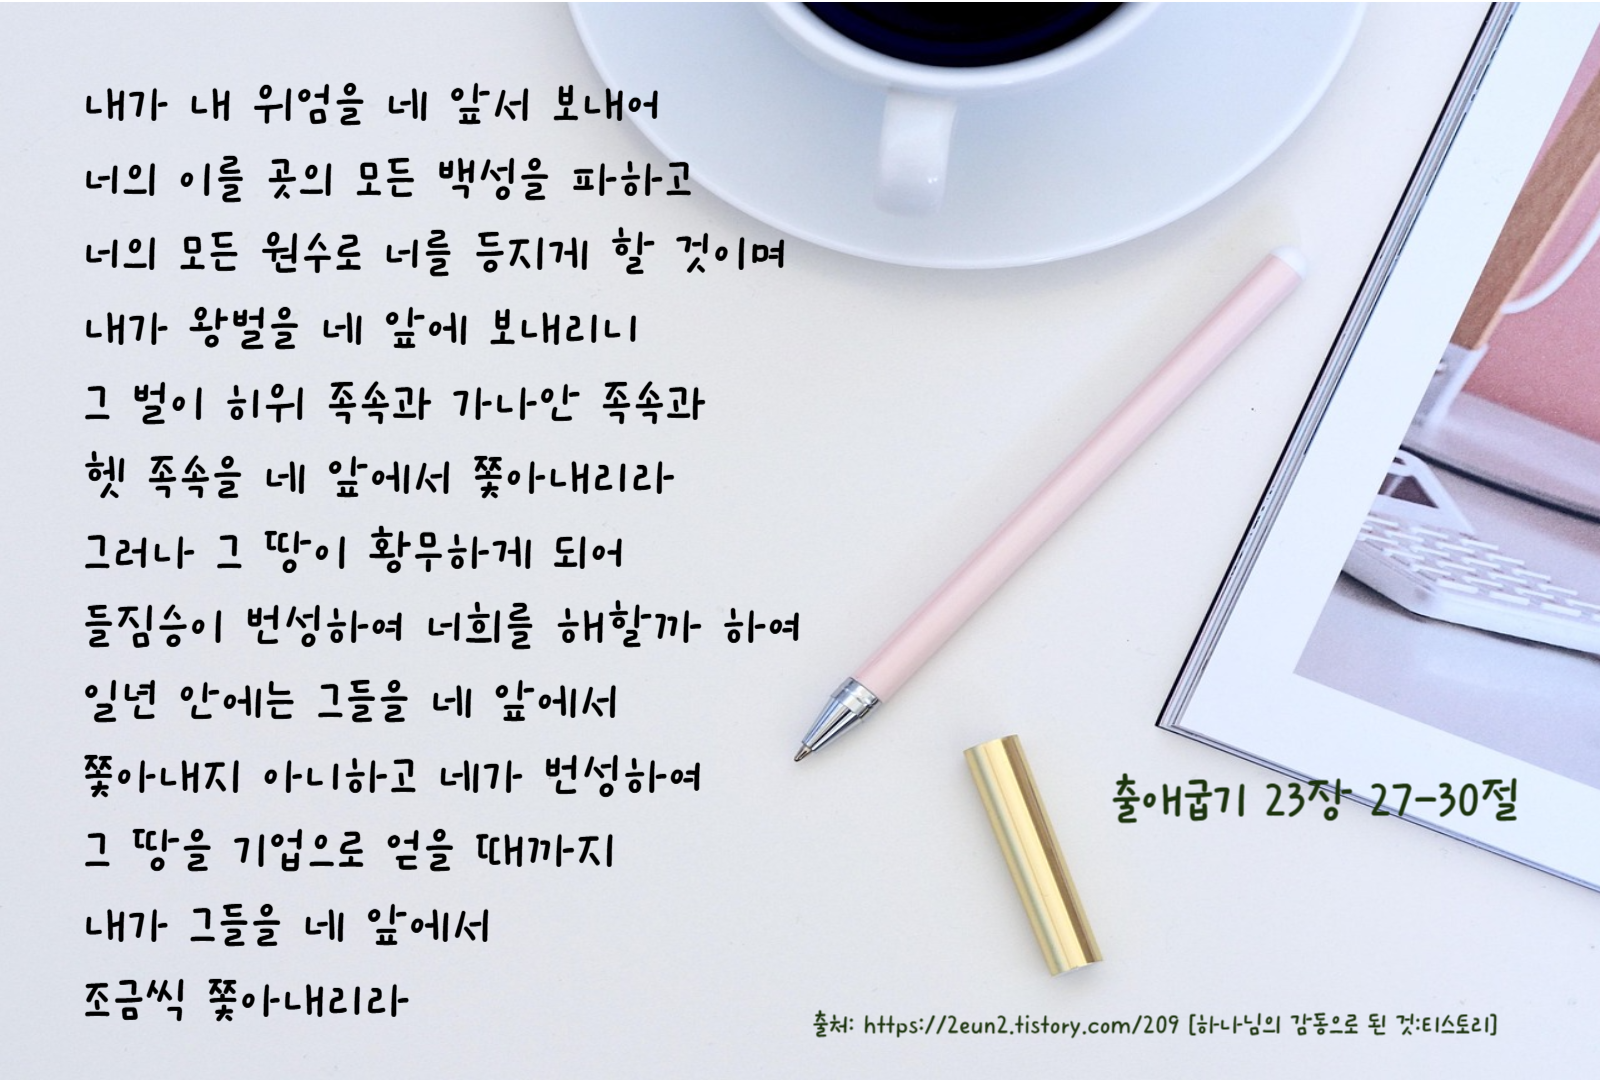 내가 내 위엄을 네 앞서 보내어
너의 이를 곳의 모든 백성을 파하고
너의 모든 원수로 너를 등지게 할 것이며
내가 왕벌을 네 앞에 보내리니
그 벌이 히위 족속과 가나안 족속과
헷 족속을 네 앞에서 쫓아내리라
그러나 그 땅이 황무하게 되어
들짐승이 번성하여 너희를 해할까 하여
일년 안에는 그들을 네 앞에서
쫓아내지 아니하고 네가 번성하여
그 땅을 기업으로 얻을 때까지
내가 그들을 네 앞에서
조금씩 쫓아내리라
출애굽기 23장 27-30절
출처: https://2eun2.tistory.com/209 [하나님의 감동으로 된 것:티스토리]